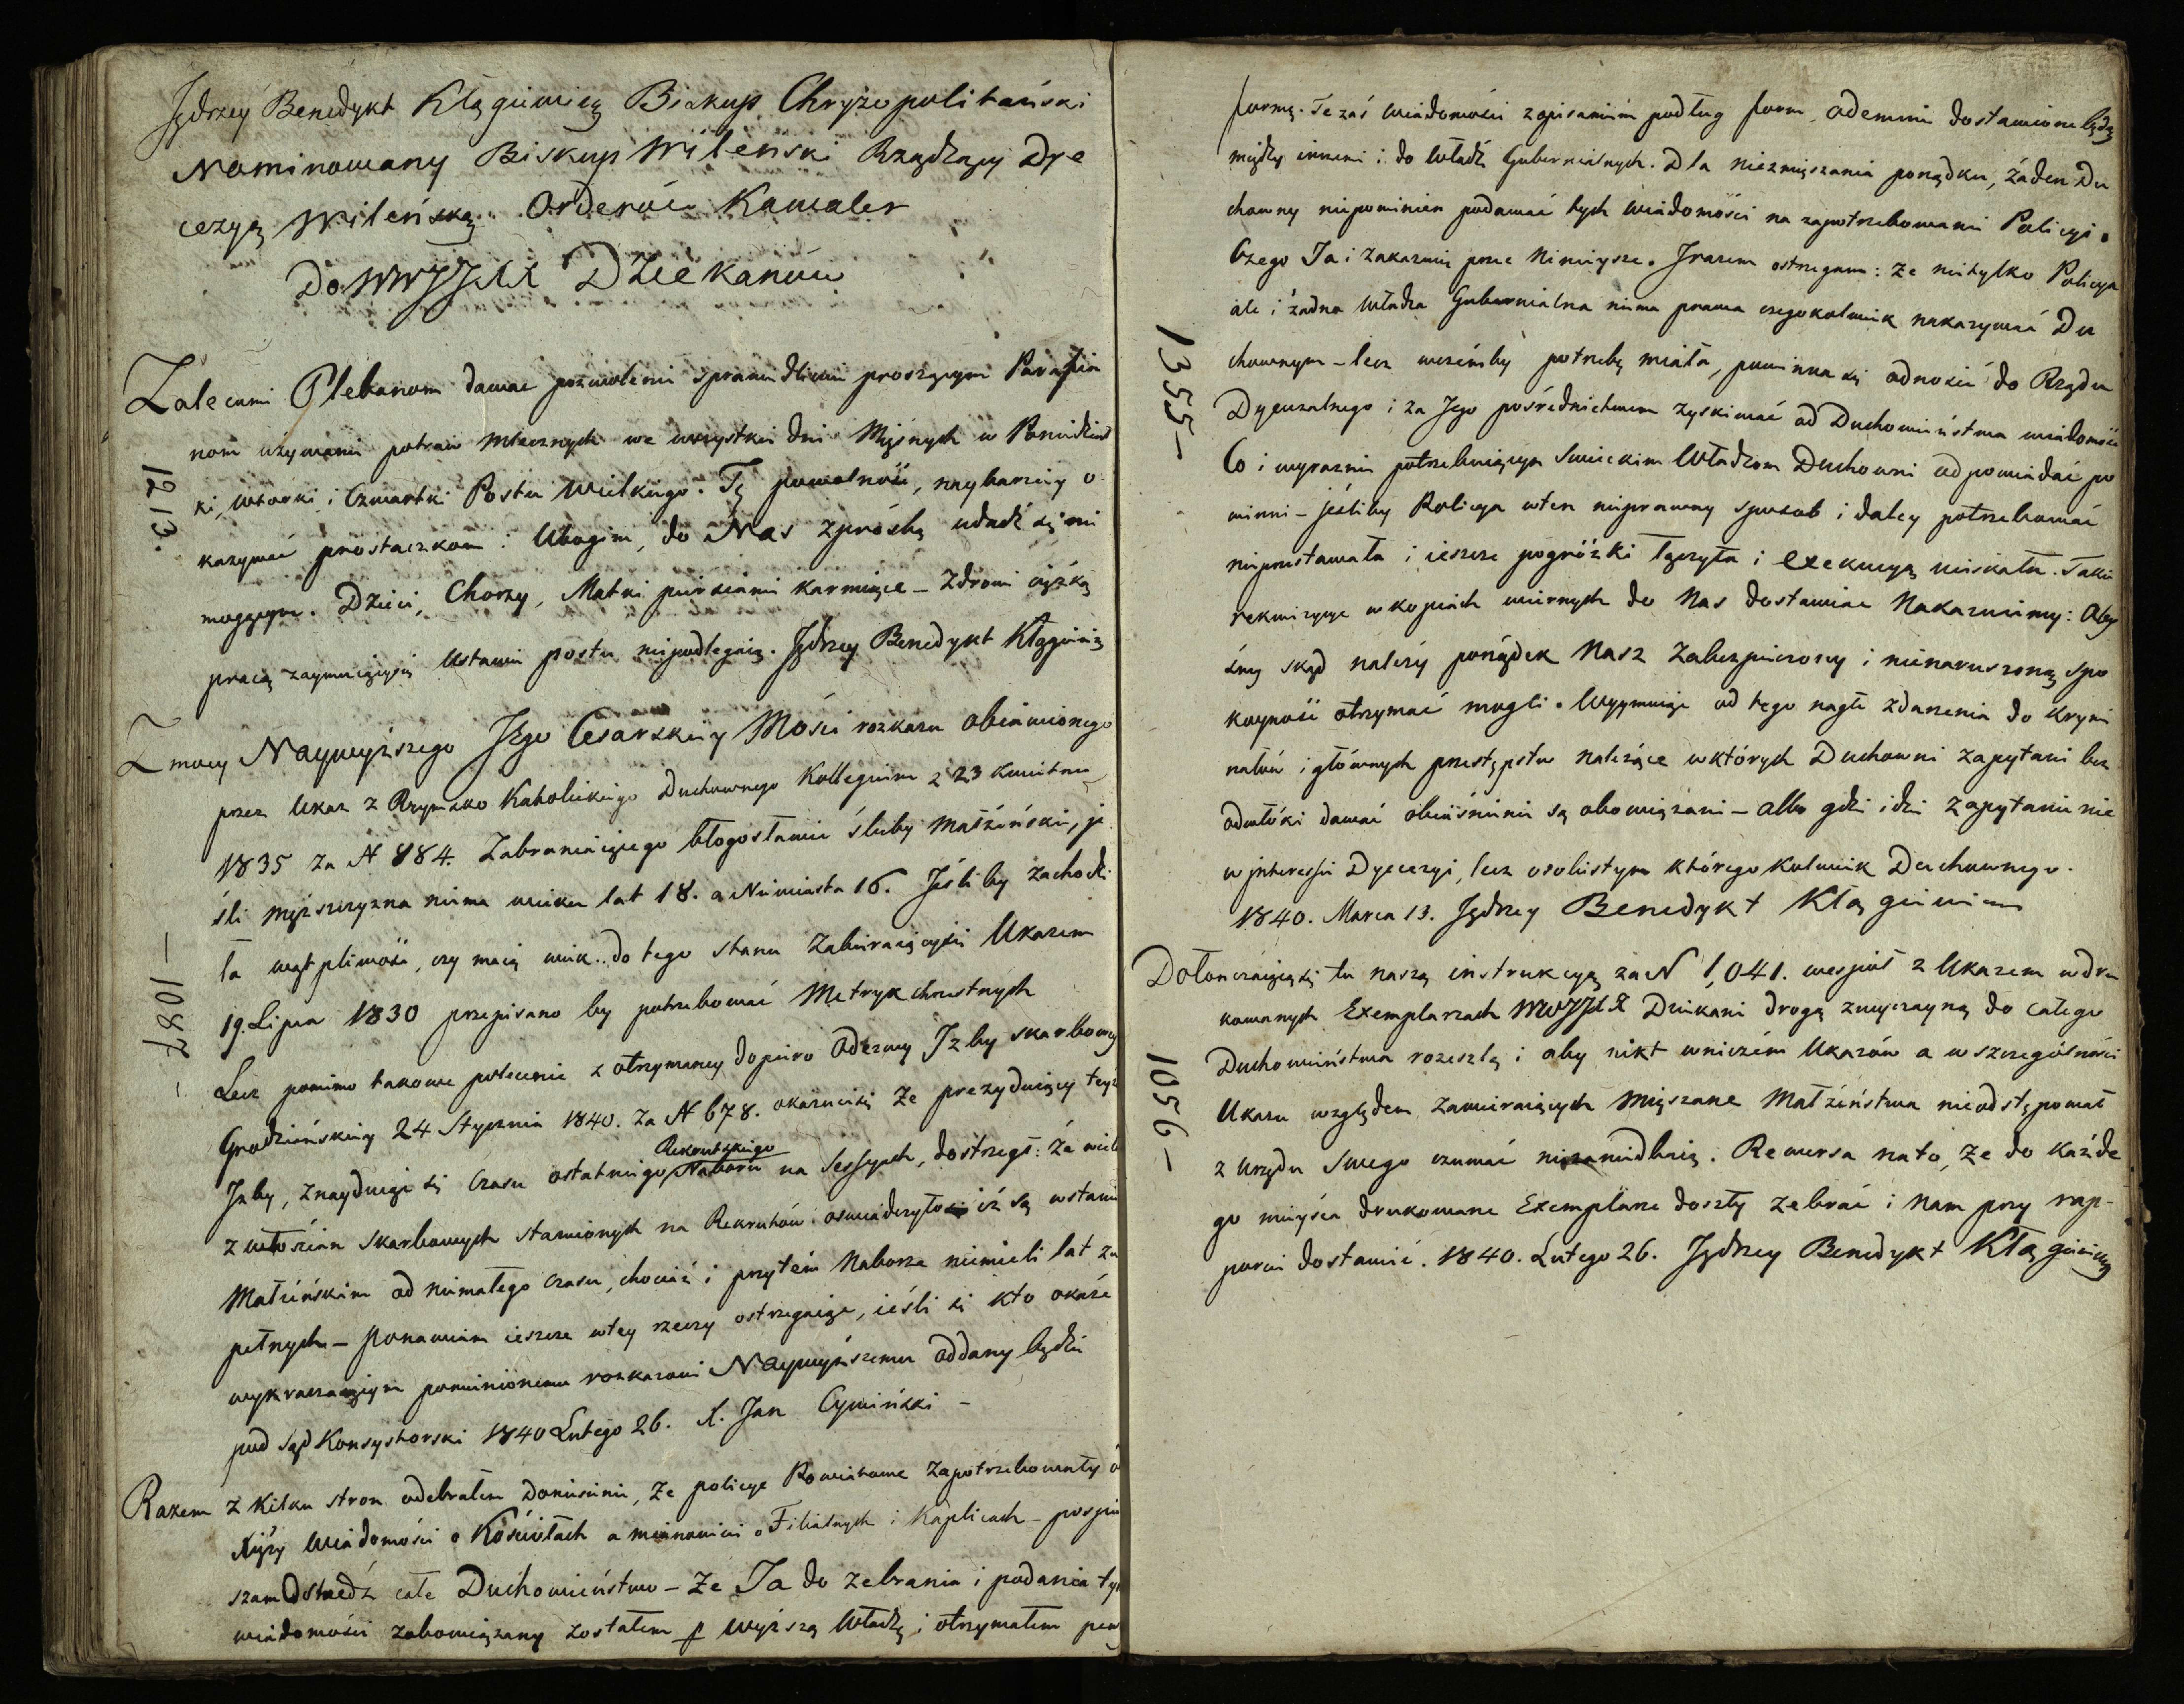 Jędrzey Benedykt Kłągiewicz Biskup Chryzopolitański
Nominowany Biskup Wileński Rządzący Dye
cezyą Wileńską Orderów Kawaler
Do WWJJXX Dziekanów
Zalecami Plebanom dawać pozwolenie sprawiedliwie proszącym Parafia
nom używania potraw mlecznych we wszystkie dni Mięsnych w Poniedział
ki, wtorki i Czwartki Postu Wielkiego. Tę powolność, naybarziey o
kazywać prostaczkom i Ubogim, do Nas z prośbą udadź się nie
mogącym. Dzieci, Chorzy, Matki piersiami karmiące - Zdrowi ciężką
pracą zaymuiącysię Ustawie postu niepodlegaią. Jędrzey Benedykt Kłągiewicz
1213.
Z mocy Naywyższego Jego Cesarskiey Mości rozkazu obiawionego
przez Ukaz z Rzymsko Katolickiego Duchownego Kollegium z 23 Kwietnia
1835 za N 884. Zabraniaiącego błogosławić śluby małżeńskie, je
śli męższczyzna niema wieku lat 18. a Niewiasta 16. Jeśliby zachodzi
ła wątpliwość, czy maią wiek do tego stanu Zabieraiącysię Ukazem
19. Lipca 1830 przepisano by potrzebować Metryk chrestnych
Lecz pomimo takowe polecenie z otrzymaney dopiero Odezwy Izby skarbowey
Grodzieńskiey 24 Stycznia 1840. za N 678. okazuiesię Ze prezyduiący teyż
Izby, znayduiąc się Czasu ostatniego Rekrutskiego Naboru na Sessyach, dostrzegł: że wielu
z włościan Skarbowych stawionych na Rekrutów oświadczyło iż są w stanie
Małżeńskim od niemałego czasu, chociaż i przytém Naborze niemieli lat zu
pełnych - Ponawiam ieszcze wtey rzeczy ostrzegaiąc, ieśli się kto okaże
wykraczaiącym pomienionemu rozkazowi Naywyższemu oddany będzie
pod Sąd Konsystorski 1840 Lutego 26. X. Jan Cywiński -
- 1087 -
Razem z Kilku stron odebrałem doniesienie, Ze policye Powiatowe Zapotrzebowały o
Xięży Wiadomości o Kościołach a mianowicie o Filialnych i Kaplicach - pospie
szam Ostredź całe Duchowieństwo - Ze Ja do zebrania i podania tych
wiadomości zobowiązany zostałem p wyższą Władzę i otrzymałem pew
formę. Te zaś wiadomości z opisaniem podług form, odemnie dostawione będą
między innemi i do Władz Gubernialnych. Dla niezmięszania porządku, żaden Du
chowny niepowinien podawać tych wiadomości na zapotrzebowanie Policyi.
Czego Ja i zakazuię prze Ninieysze. Jrazem ostrzegam: Ze nietylko Policya
ale i żadna Władza Gubernialna niema prawa czegokolwiek nakazywać Du
chownym - lecz wczémby potrzebę miała, powinna się odnosić do Rządu
Dyecezalnego i za Jego pośrednictwem zyskiwać od Duchowieństwa wiadomości
Co i wyraznie potrzebuiącym Swieckim Władzom Duchowni odpowiadać po
winni - jeśliby Policya wten nieprawny sposob i daley potrzebować
nieprzestawała i ieszcze pogróżki łączyła i exekucyą uciskała. Takie
rekwizycye w kopiach wiernych do Nas dostawiać Nakazuiemy: Aby
śmy skąd należy porządek Nasz Zabezpieczony i nienaruszoną spo
koyność otrzymać mogli. Wyymuiąc od tego nagłe zdarzenia do krymi
nałów i głównych przestępstw należące w których Duchowni zapytani bez
odwłóki dawać obiaśnienie są obowiązani - albo gdzi idzi zapytanie nie
w jnteressie Dyecezyi, lecz osobistym któregokolwiek Duchownego.
1840. Marca 13. Jędrzey Benedykt Kłągiewicz
1355 -
Dołonczaiącą się tu naszą instrukcyą za N 1,041. wespół z Ukazem w dru
kowanych Exemplarzach WWJJXX Dziekani drogą zwyczayną do całego
Duchowieństwa rozeszlą i aby nikt wniczém Ukazów a w szczególności
Ukazu względem zawieraiących mięszane Małżeństwa nieodstępował
z urzędu Swego czuwać niezaniedbaią. Rewersa nato, Ze do każde
go mieysca drukowane Exemplarze doszły zebrać i Nam przy rap-
porcie dostawić. 1840. Lutego 26. Jędrzey Benedykt Kłągiewicz
1056 -